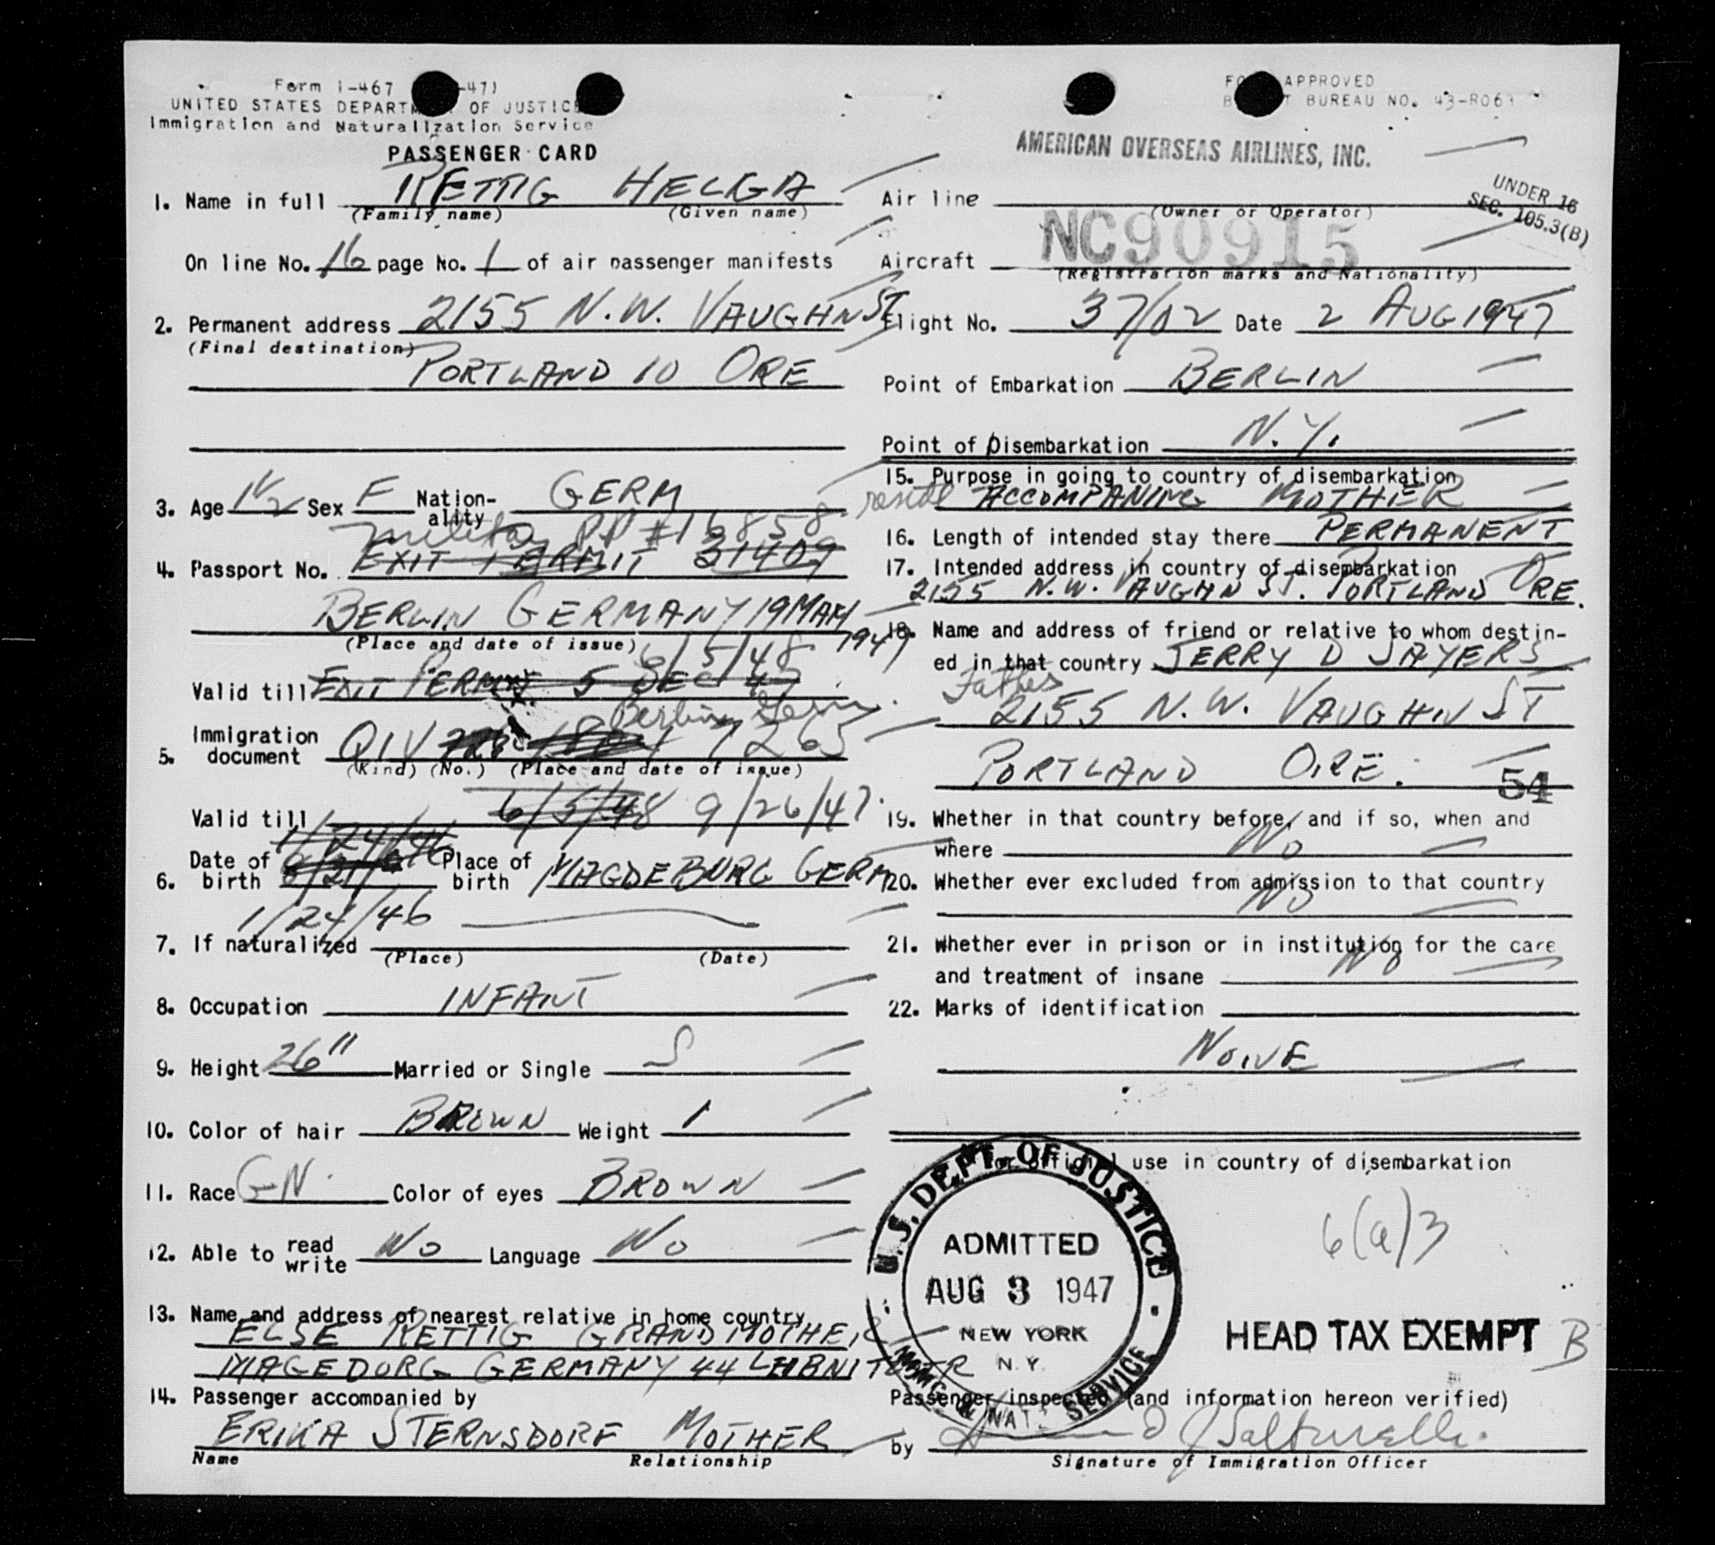 Form I-467 -47)
UNITED STATES DEPARTMENT OF JUSTICE
Immigration and Naturalization Service
PASSENGER CARD
1. Name in full RETTIG HELGA
(Family name) (Given name)
On line No. 16 page No. 1 of air passenger manifests
2. Permanent address 2155 N.W. VAUGHN ST
(Final destination)
PORTLAND 10 ORE
3. Age 1 1/2 Sex F Nation-ality GERM
Military PP # 16858
4. Passport No. EXIT PERMIT 31409
BERLIN GERMANY 19 MAY 1947
(Place and date of issue)
6/5/48
Valid till EXIT PERMIT 5 DEC 47
Berlin, Germ.
5. Immigration document QIV 7265
(Kind) (No.) (Place and date of issue)
Valid till 6/5/48 9/26/47
1/24/46
6. Date of birth Place of birth MAGDEBURG GERM
1/24/46
7. If naturalized
(Place) (Date)
8. Occupation INFANT
9. Height 26" Married or Single S
10. Color of hair BROWN Weight 1
11. Race GN Color of eyes BROWN
12. Able to read write NO Language NO
13. Name and address of nearest relative in home country
ELSE RETTIG GRANDMOTHER
MAGEDORG GERMANY 44
14. Passenger accompanied by
ERIKA STERNSDORF MOTHER
Name Relationship
FORM APPROVED
BUDGET BUREAU NO. 43-R063
AMERICAN OVERSEAS AIRLINES, INC.
UNDER 16
SEC. 105.3(B)
Air line
(Owner or Operator)
Aircraft NC90915
(Registration marks and Nationality)
Flight No. 37/02 Date 2 AUG 1947
Point of Embarkation BERLIN
Point of Disembarkation N.Y.
15. Purpose in going to country of disembarkation
reside ACCOMPANING MOTHER
16. Length of intended stay there PERMANENT
17. Intended address in country of disembarkation
2155 N.W. VAUGHN ST. PORTLAND ORE.
18. Name and address of friend or relative to whom destin-
ed in that country JERRY D SAYERS
Father
2155 N.W. VAUGHN ST
PORTLAND ORE.
54
19. Whether in that country before, and if so, when and
where NO
20. Whether ever excluded from admission to that country
NO
21. Whether ever in prison or in institution for the care
and treatment of insane NO
22. Marks of identification
NONE
For official use in country of disembarkation
U.S. DEPT. OF JUSTICE
ADMITTED
AUG 3 1947
NEW YORK
N.Y.
IMMIG. & NATZ. SERVICE
6(a)3
HEAD TAX EXEMPT B
Passenger inspected (and information hereon verified)
by
Signature of Immigration Officer